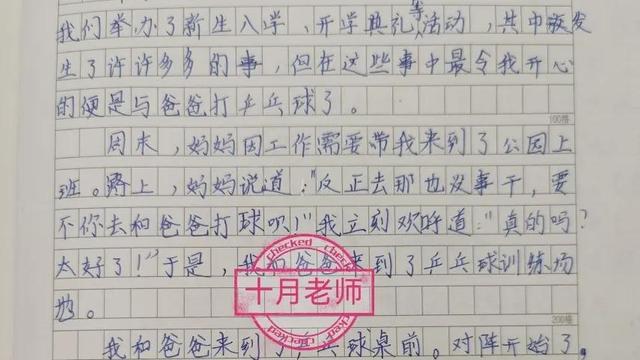 我们举办了新生入学、开学典礼等活动,其中
生了许许多多的事,但在这些事中最令我开心
的便是与爸爸打乒乓球了。
100格
周末,妈妈因工作需要带我来到了公园上
班。路上,妈妈说道:"反正去那也没事干,要
不你去和爸爸打球呗!"我立刻欢呼道:"真的吗?
太好了!"于是,我和爸爸来到了乒乓球训练场
地。
200格
我和爸爸来到了乒球桌前。对阵开始了,
checked
十月老师
checked